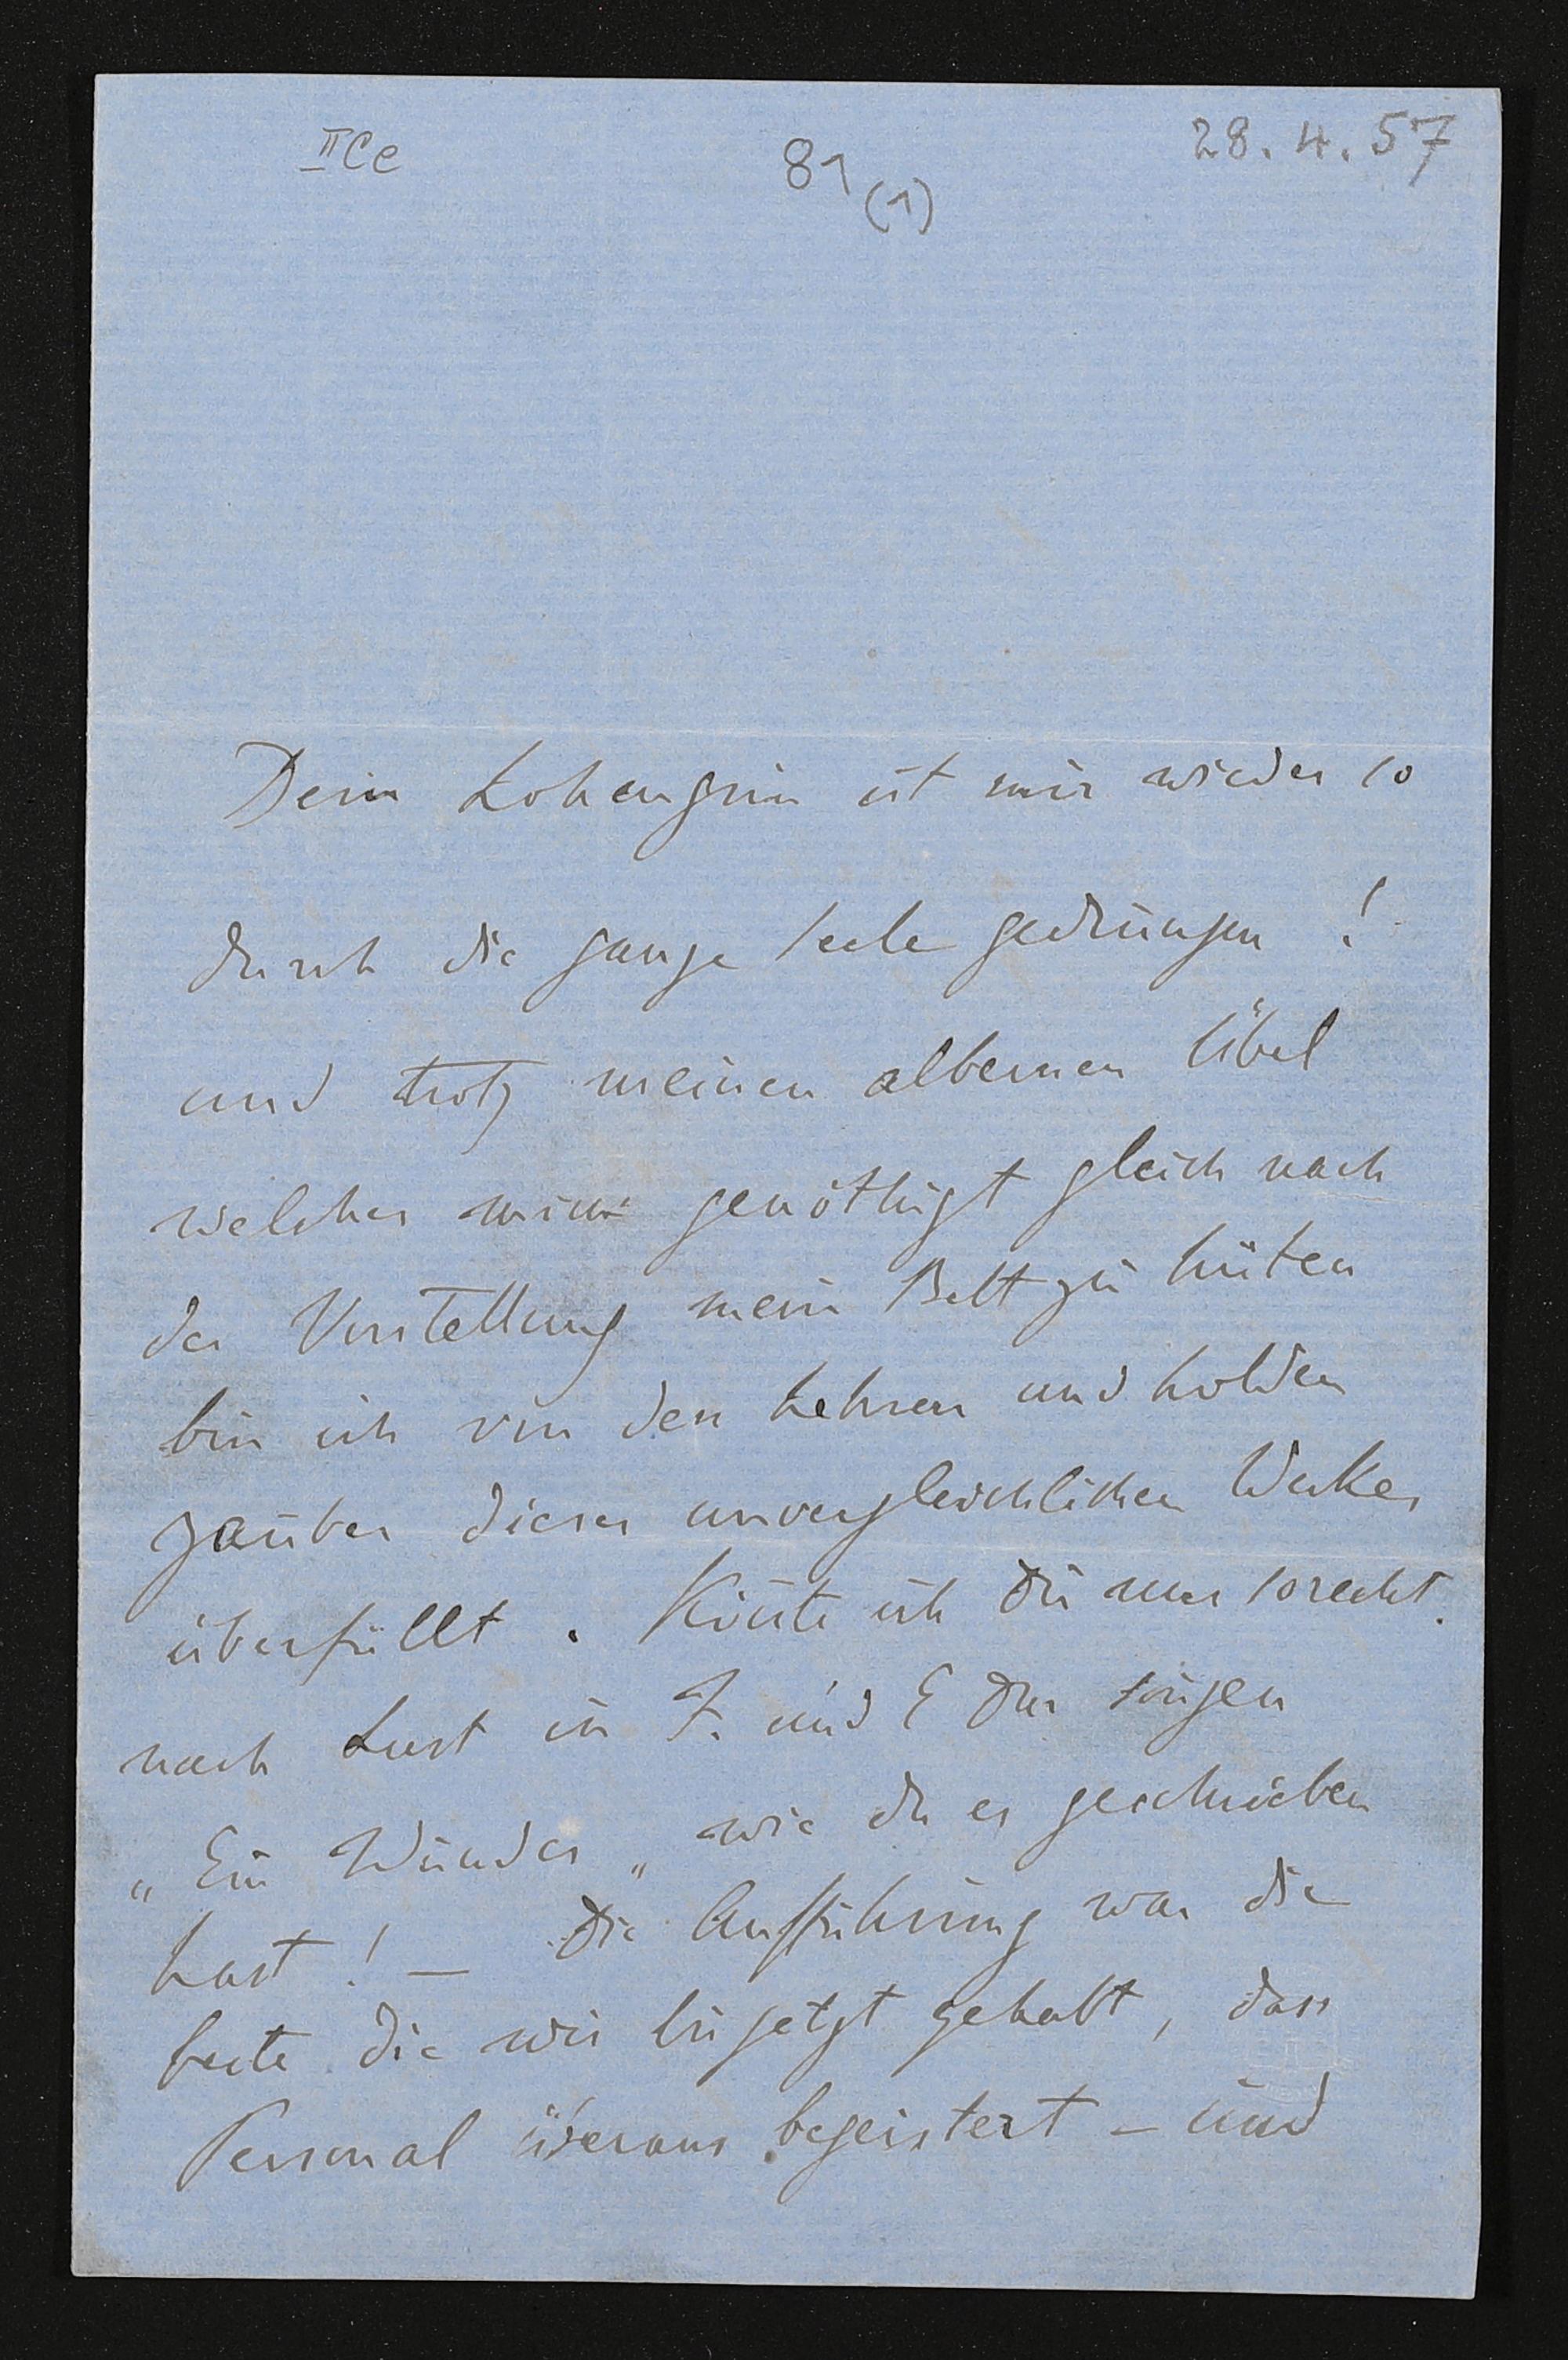 IICe
81 (1)
28. 4. 57
Dein Lohengrin ist mir wieder so
durch die ganze Seele gedrungen !
und trotz meinen albernen Übel
welches mich genöthigt gleich nach
der Vorstellung mein Bett zu hüten
bin ich von den hehren und holden
Zauber dieses unvergleichlichen Werkes
überfüllt . Könte ich Dir nur so recht
nach Lust in F. und E dur singen
„ Ein Wunder „ wie du es geschrieben
hast ! — Die Aufführung war die
beste die wir bis jetzt gehabt , das
Personal überaus begeistert – und